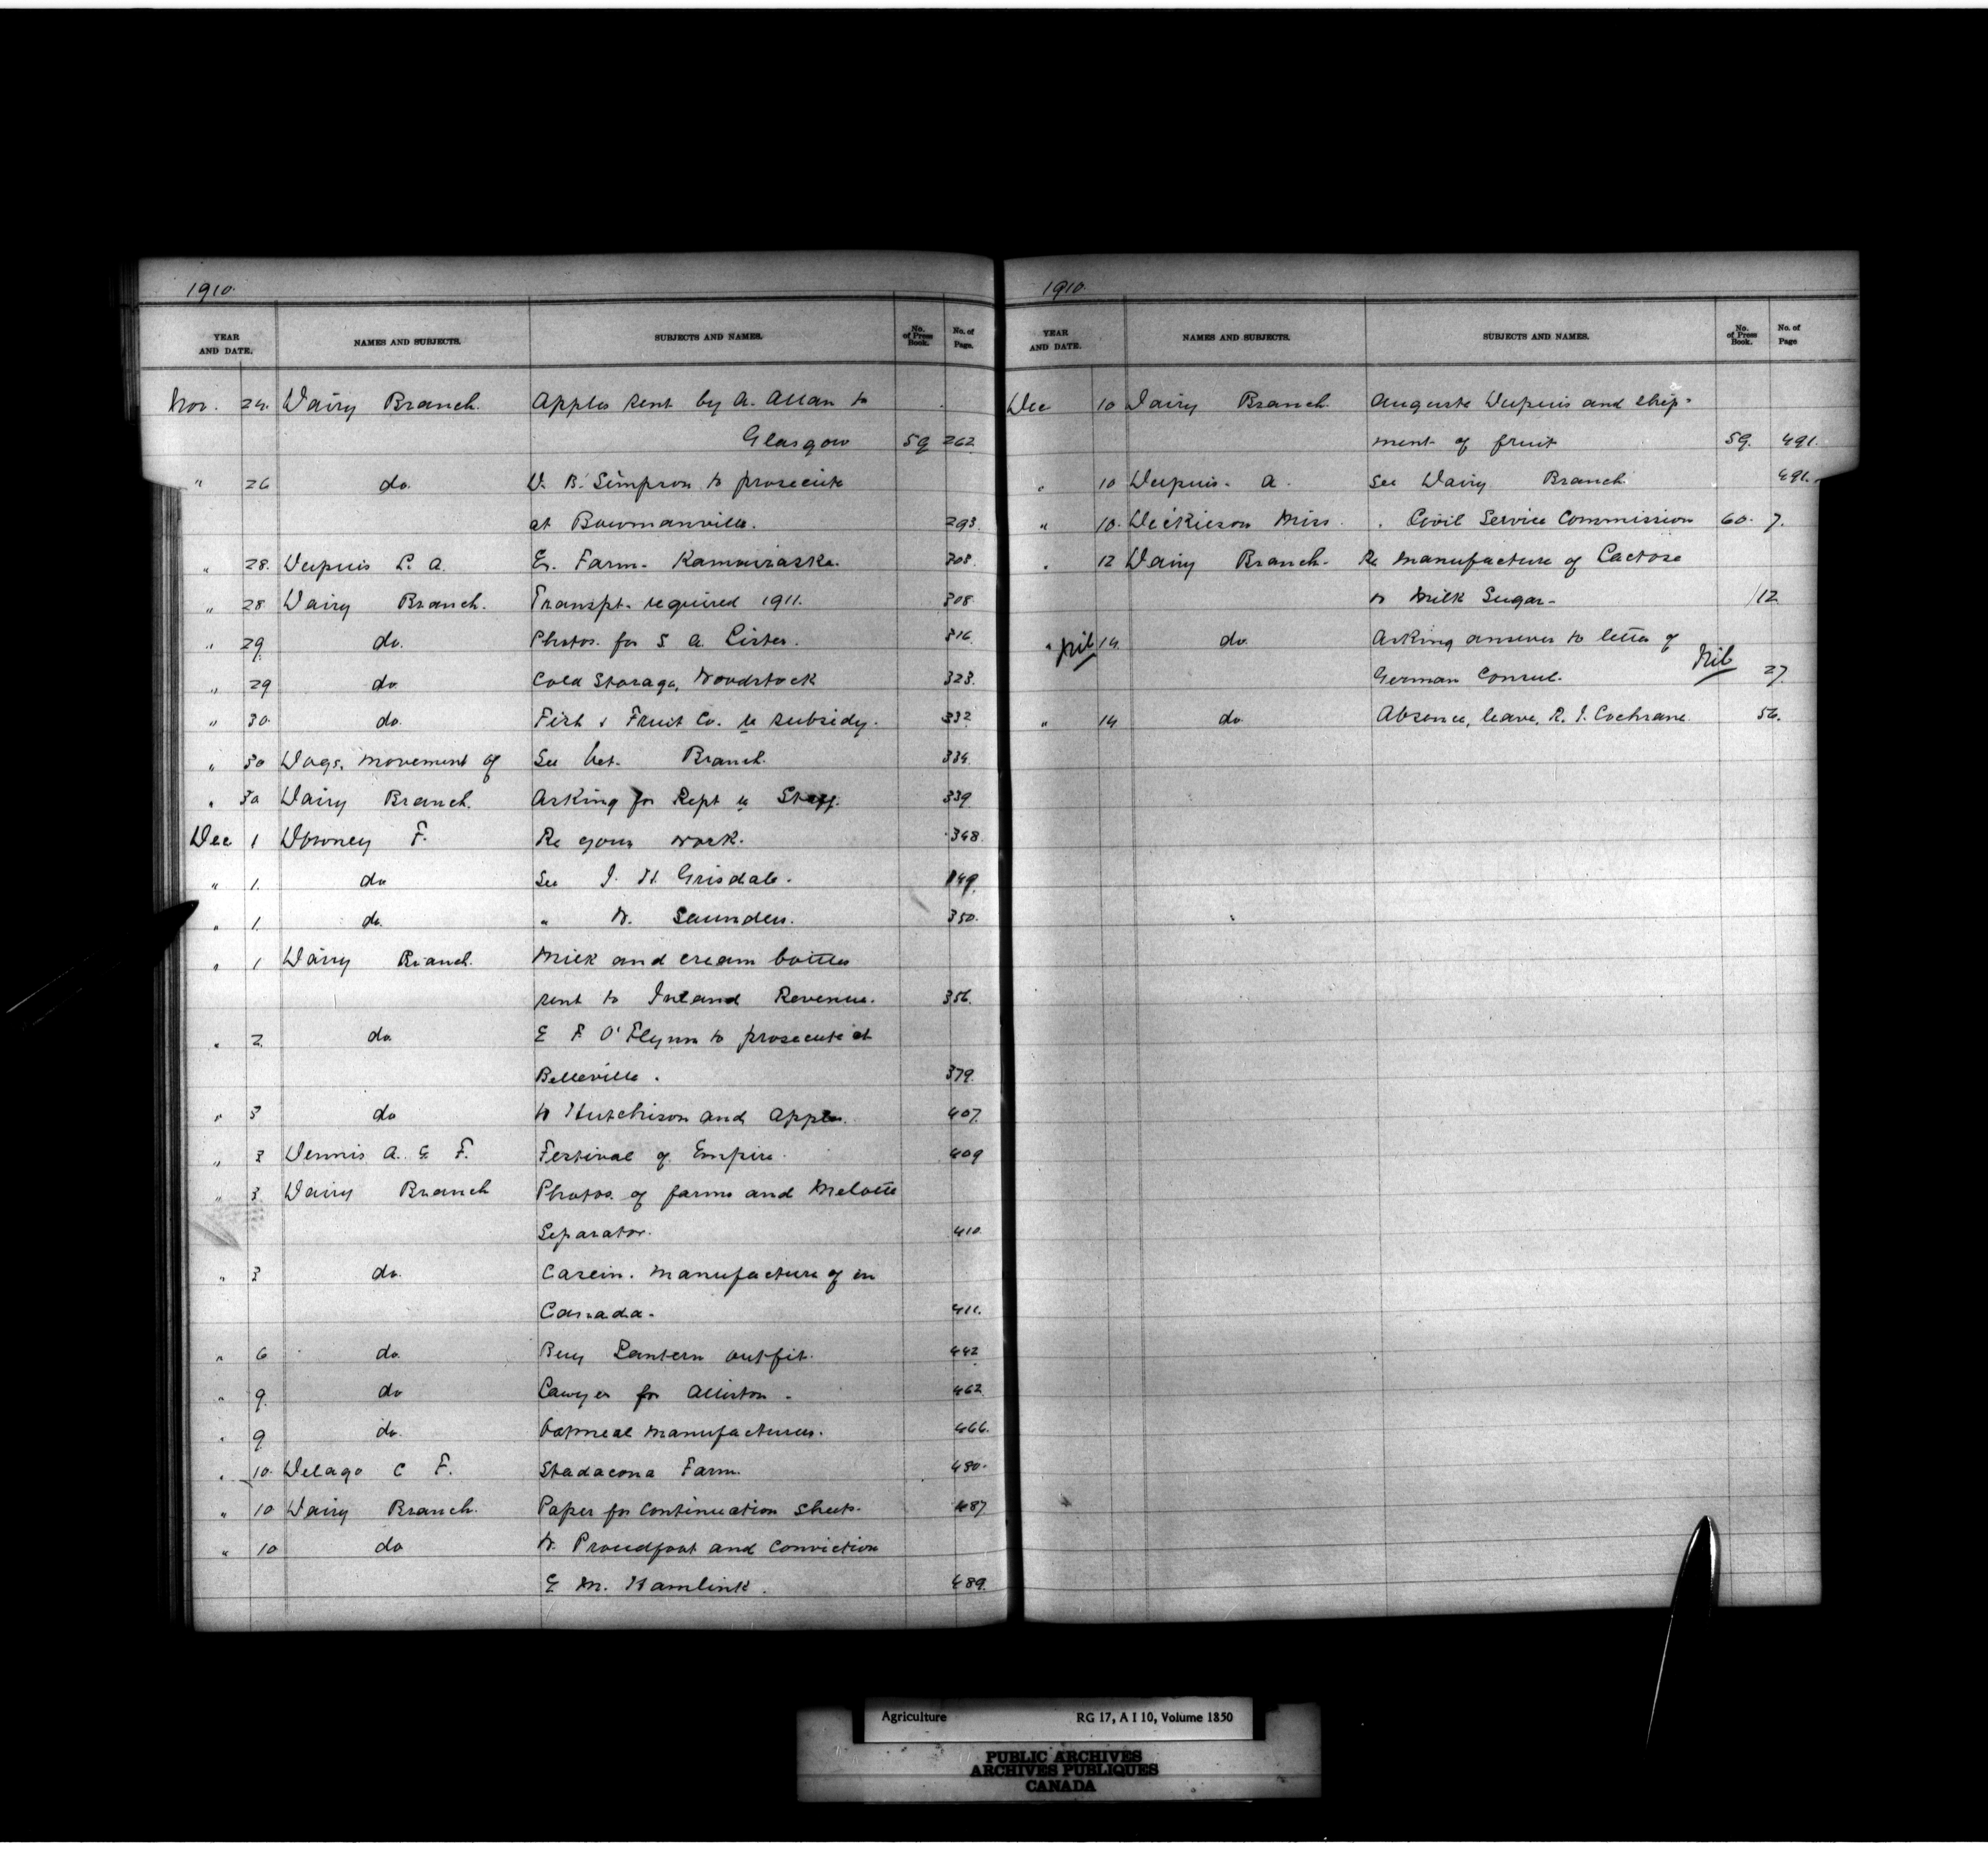 1910.
YEAR AND DATE. NAMES AND SUBJECTS. SUBJECTS AND NAMES. No. of Press Book. No. of Page.
Nov. 24. Dairy Branch. Apples sent by A. Allan to
Glasgow 59 262
" 26 do. D. B. Simpson to prosecute
at Bowmanville. 293.
" 28. Dupuis L. A. Ex. Farm. Kamouraska. 308.
" 28 Dairy Branch. Transpt. required 1911. 308.
" 29 do. Photos. for S. A. Lister. 316.
" 29 do Cold Storage, Woodstock 323.
" 30 do. Fish & Fruit Co. re subsidy. 332
" 30 Dogs. movement of See Vet. Branch. 334.
" 30 Dairy Branch. Asking for Rept re Staff. 339.
Dec 1 Downey F. Re your work. 348.
" 1. do See J. H. Grisdale. 349.
" 1. do. " W. Saunders. 350.
" 1 Dairy Branch. Milk and cream bottles
sent to Inland Revenue. 356.
" 2 do. E F O'Flynn to prosecute at
Belleville. 379.
" 3 do W Hutchison and Apples. 407.
" 3 Dennis A. E. F. Festival of Empire. 409
" 3 Dairy Branch Photos. of farms and Melotte
Separator. 410.
" 3 do. Casein. Manufacture of in
Canada. 411.
" 6 do. Buy Lantern outfit. 442
" 9. do Lawyer for Alliston. 462.
" 9 do. Oatmeal Manufacturers. 466.
" 10. Delage C F. Stadacona Farm. 480.
" 10 Dairy Branch. Paper for Continuation Sheets. 487
" 10 do W. Proudfoot and Conviction
E M. Hamlink. 489.
1910.
YEAR AND DATE. NAMES AND SUBJECTS. SUBJECTS AND NAMES. No. of Press Book. No. of Page
Dec 10 Dairy Branch. Auguste Dupuis and ship-
ment of fruit 59. 491.
" 10 Dupuis. A. See Dairy Branch 491.
" 10. Dickieson Miss. " Civil Service Commission 60. 7.
" 12 Dairy Branch. Re Manufacture of Lactose
or Milk Sugar. 12
" Nil 14. do. Asking answer to letter of
German Consul. Nil 27.
" 14 do. Absence, leave, R. J. Cochrane. 56.
Agriculture RG 17, A I 10, Volume 1850
PUBLIC ARCHIVES
ARCHIVES PUBLIQUES
CANADA